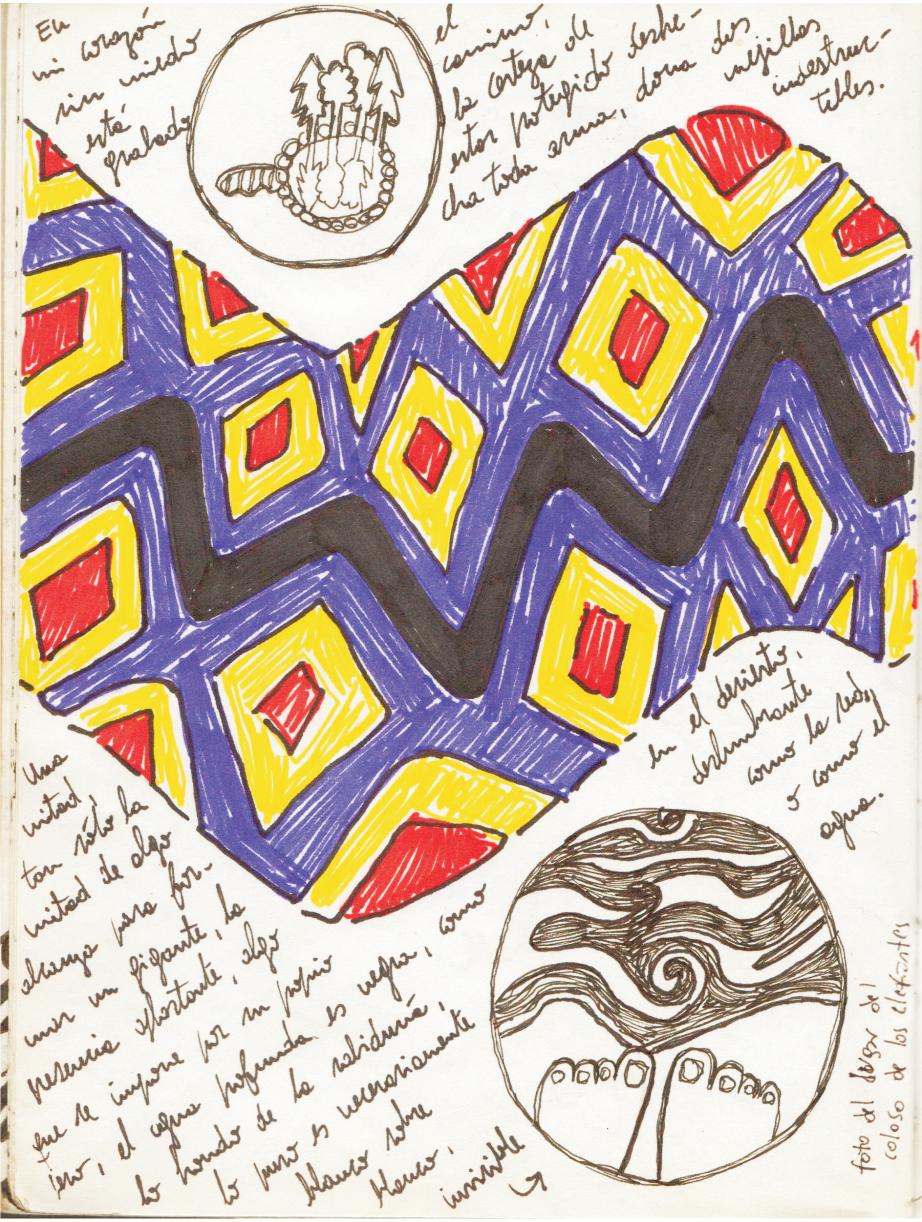 En
mi corazón
sin miedo
está
grabado
el
camino,
la certeza de
estar protegido deshe-
cha toda arma, dona dos
mejillas
indestruc-
tibles.
Una
mitad,
tan sólo la
mitad de algo
alcanza para for-
mar un gigante, la
presencia algo
que se impone por su propio
peso, el agua profunda es negra, como
lo hondo de la sabiduría,
lo puro es necesariamente
blanco sobre
blanco,
invisible
en el desierto,
deslumbrante
como la sed,
o como el
agua.
foto del del
coloso de los elefantes